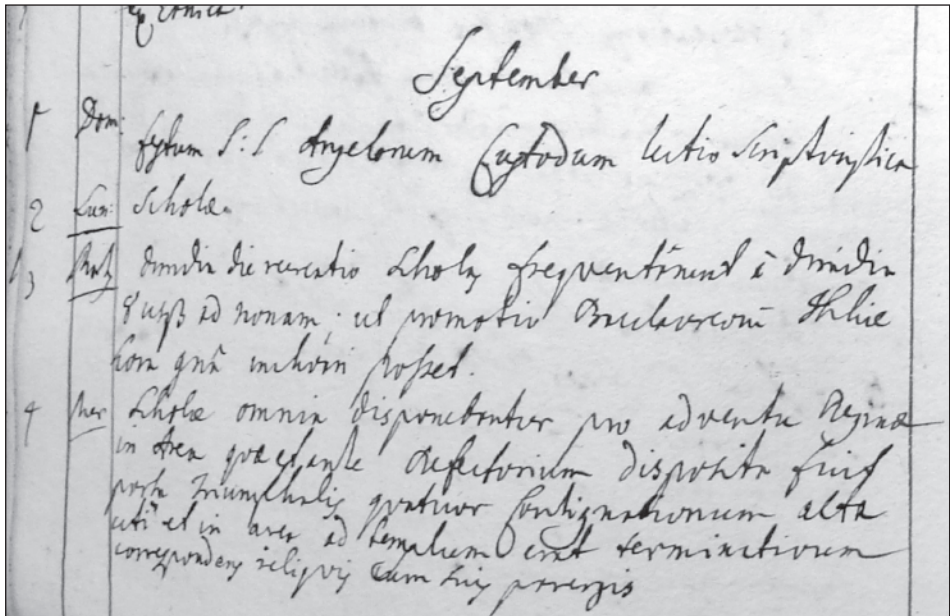 September
1 Dom: festum S: S Angelorum Custodum lectio Scripturistica
2 Lun: Scholæ.
3 Mart dimidia die recreatio Scholæ frequentarunt à dimidia
8 usq ad nonam; ut promotio Baccalaureorū
hora 9nâ inchoari posset.
4 Mer Scholæ omnia disponebantur pro adventu Reginæ
in Area quæ est ante Refectorium disposita fuit
porta triumphalis quatuor Contignationum alta
uti et in area ad templum erat terminativum
correspondens reliquis cum suis parergis